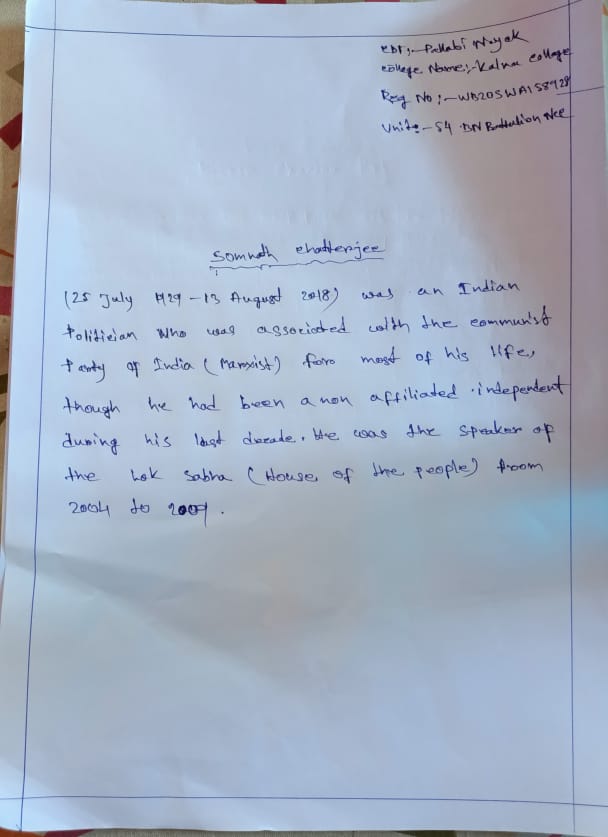 CDT:- Pallabi Nayak
College Name:- Kalna College
Reg No:- WB20SWA158928
Unit:- 54 BN Battalion Ncc
Somnath Chatterjee
(25 July 1929 - 13 August 2018) was an Indian
Politician who was associated with the communist
Party of India (Marxist) for most of his life,
though he had been a non affiliated independent
during his last decade. He was the speaker of
the Lok Sabha (House of the people) from
2004 to 2009.